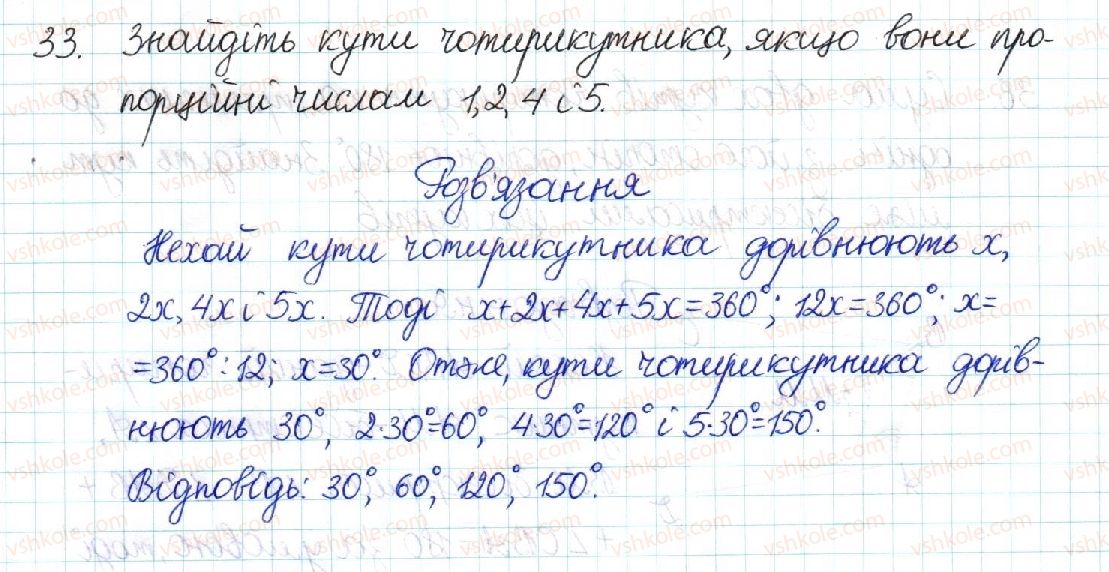 33. Знайдіть кути чотирикутника, якщо вони про-
порційні числам 1, 2, 4 і 5.
Розв'язання
Нехай кути чотирикутника дорівнюють x,
2x, 4x і 5x. Тоді x+2x+4x+5x=360°; 12x=360°; x=
=360°:12; x=30°. Отже, кути чотирикутника дорів-
нюють 30°, 2·30°=60°, 4·30°=120° і 5·30°=150°.
Відповідь: 30°, 60°, 120°, 150°.